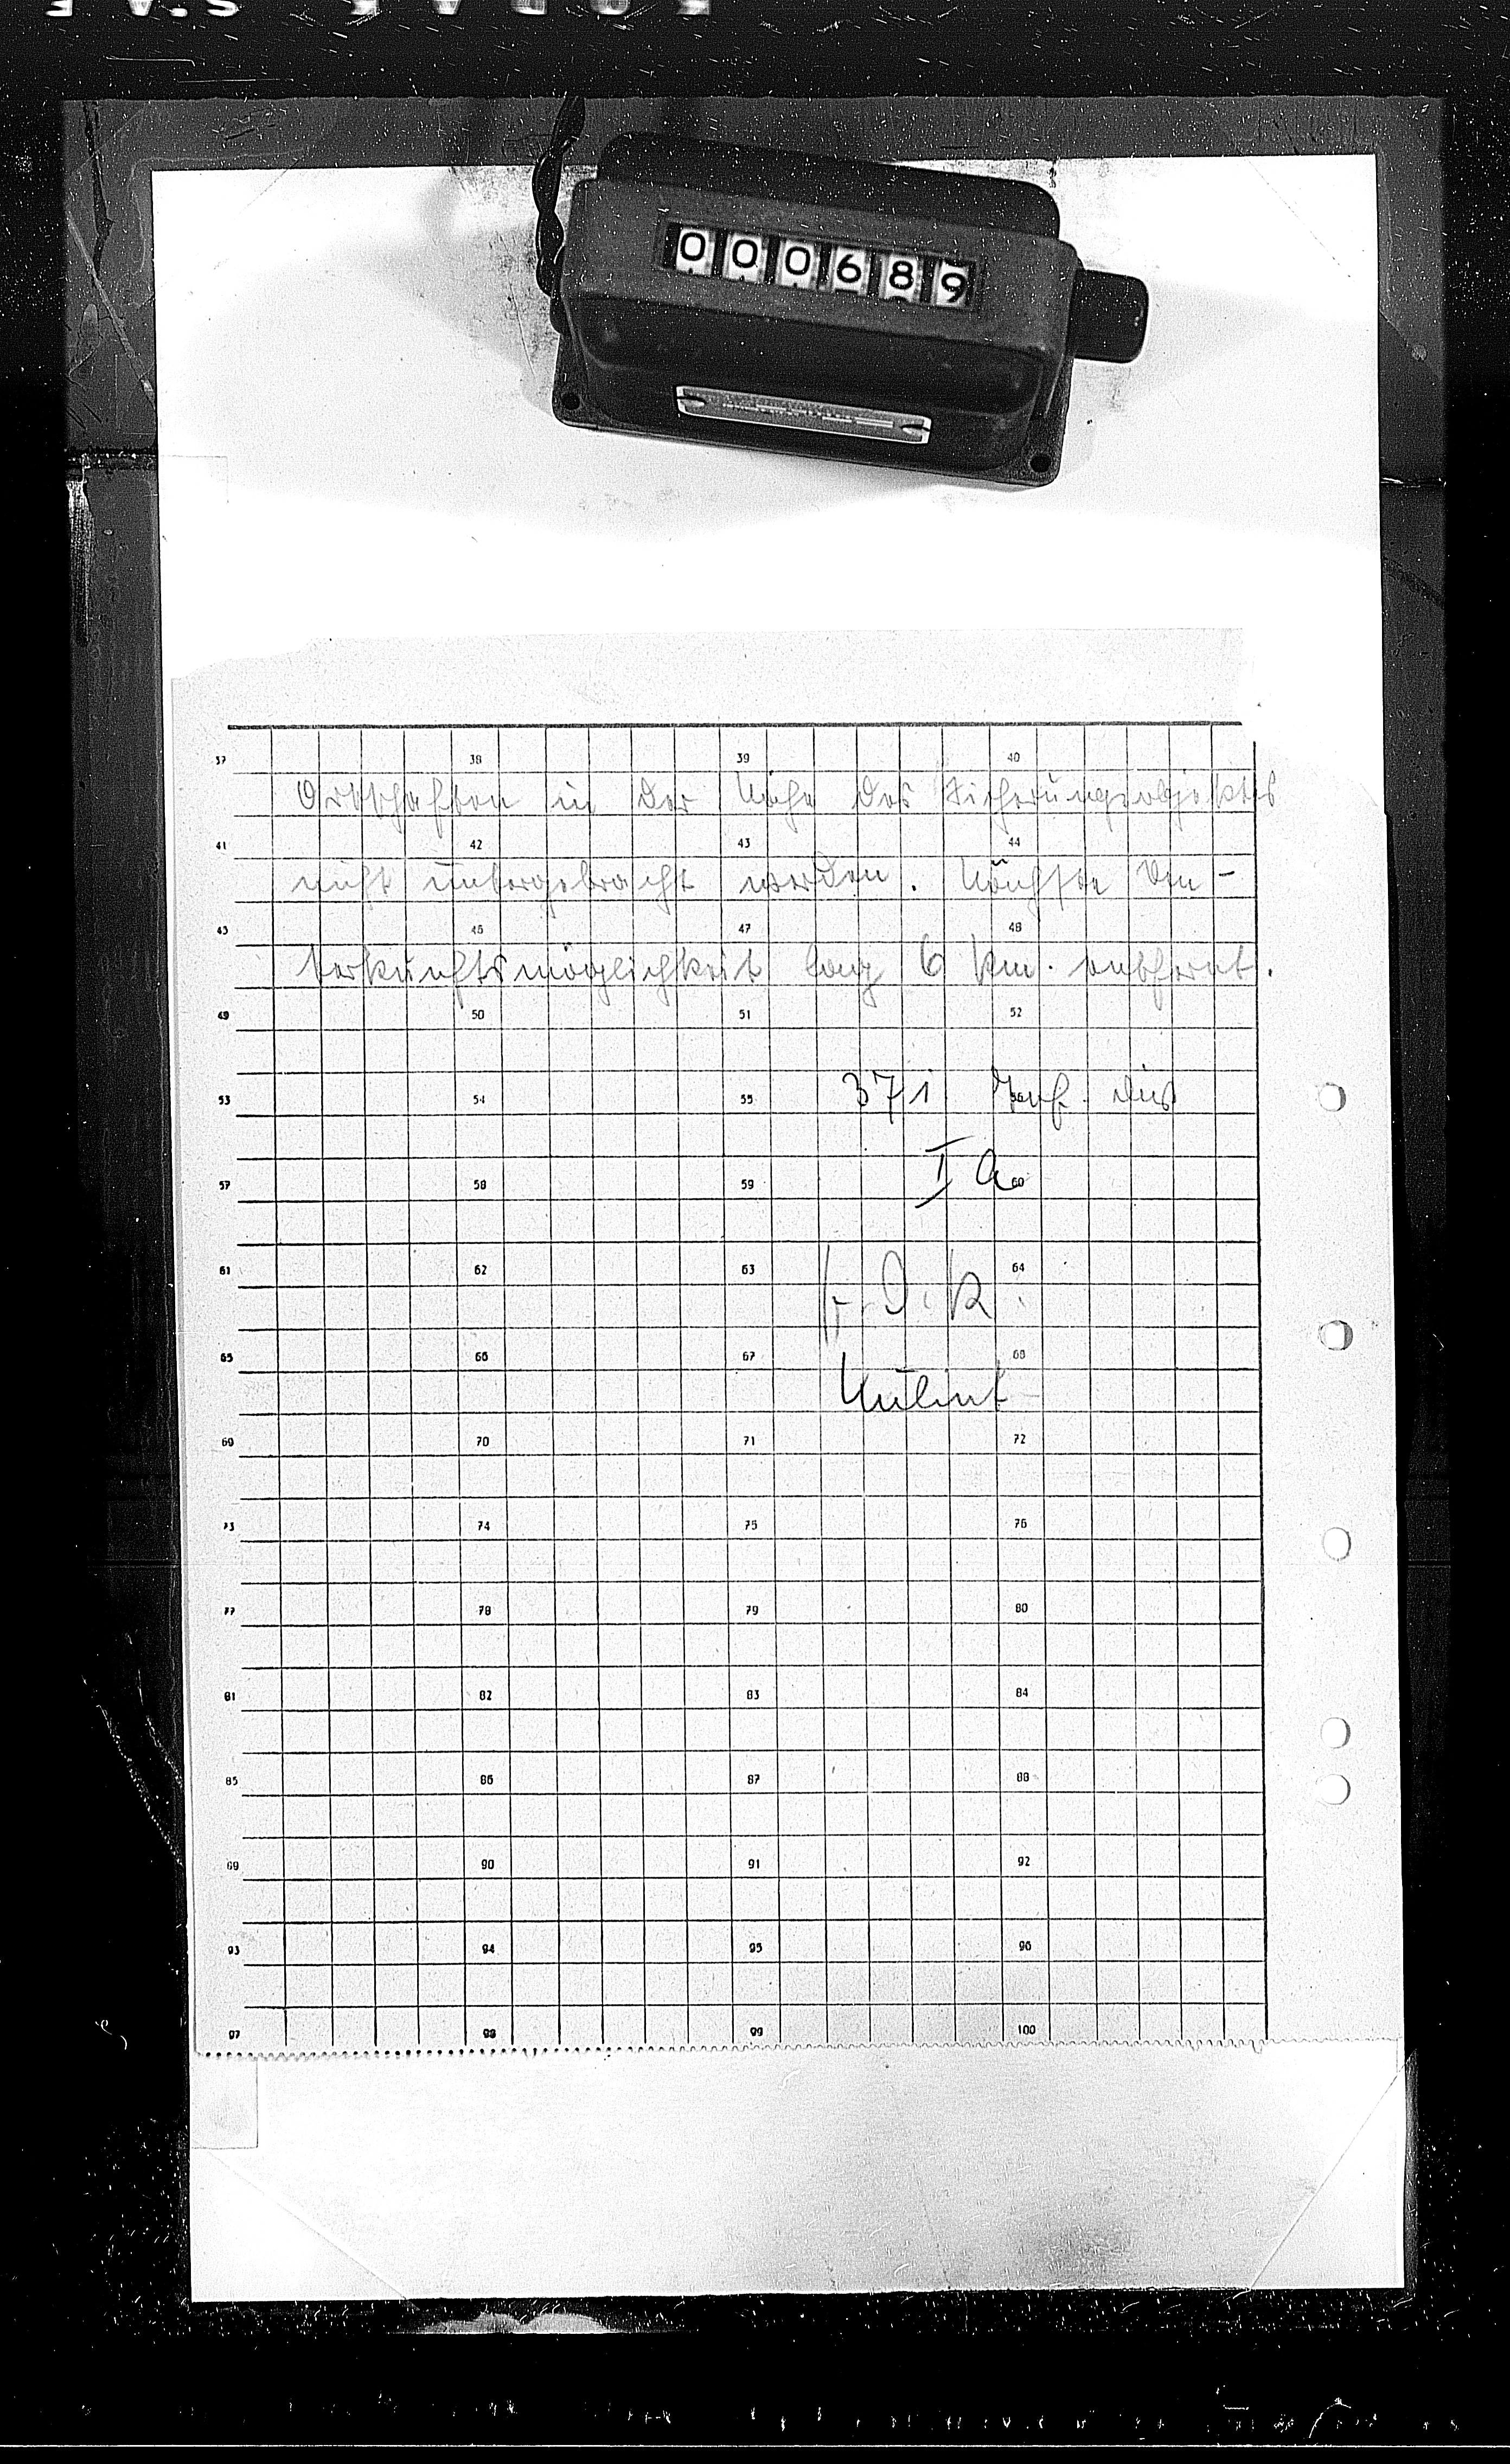 000689
37 38 39 40
Ortschaften in der Nähe des Sicherungsobjektes
41 42 43 44
nicht untergebracht werden. Nächste Un-
45 46 47 48
terkunftsmöglichkeit 6 km. entfernt.
49 50 51 52
53 54 55 371 Inf. Div
57 58 59 60
I a
61 62 63 64
F. d. R.
65 66 67 68
69 70 71 72
73 74 75 76
77 78 79 80
81 82 83 84
85 86 87 88
89 90 91 92
93 94 95 96
97 98 99 100